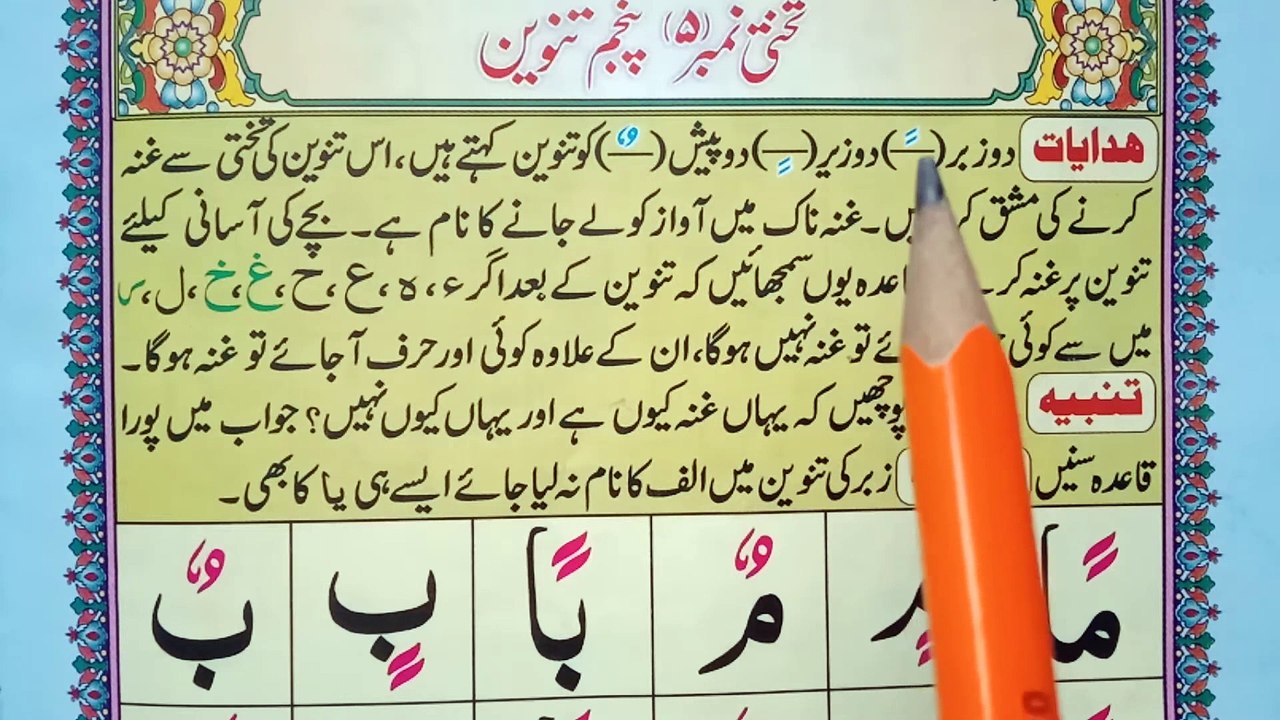 تختی نمبر (۵) پنجم تنوین
ھدایات دو زبر (ـً) دو زیر (ـٍ) دو پیش (ـٌ) کو تنوین کہتے ہیں، اس تنوین کی تختی سے غنہ
کرنے کی مشق۔ غنہ ناک میں آواز کو لے جانے کا نام ہے۔ بچے کی آسانی کیلئے
تنوین پر غنہ یوں سمجھائیں کہ تنوین کے بعد اگر ء، ہ، ع، ح، غ، خ، ل، ر
میں سے کوئی تو غنہ نہیں ہوگا، ان کے علاوہ کوئی اور حرف آ جائے تو غنہ ہوگا۔
تنبیہ پوچھیں کہ یہاں غنہ کیوں ہے اور یہاں کیوں نہیں؟ جواب میں پورا
قاعدہ سنیں زبر کی تنوین میں الف کا نام نہ لیا جائے ایسے ہی یا کا بھی۔
مًا مٌ بًا بٍ بٌ